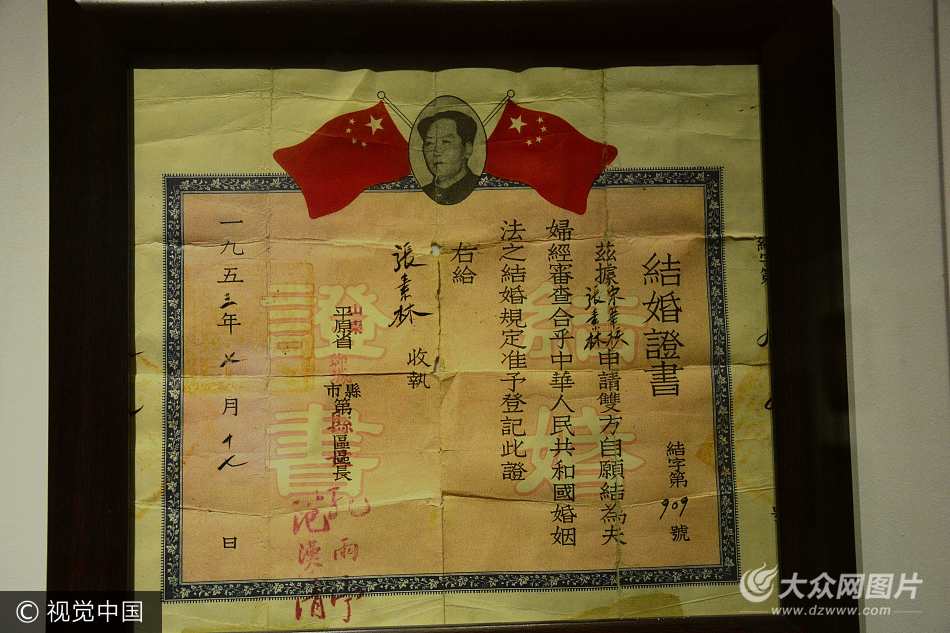 結婚證書
結字第909號
茲據
張素林
申請雙方自願結為夫
婦經審查合乎中華人民共和國婚姻
法之結婚規定准予登記此證
右給
張素林 收執
山東
平原省
市縣第
區區長
一九五三年 月十八日
結婚
證書
結字第
© 视觉中国
大众网图片
www.dzwww.com